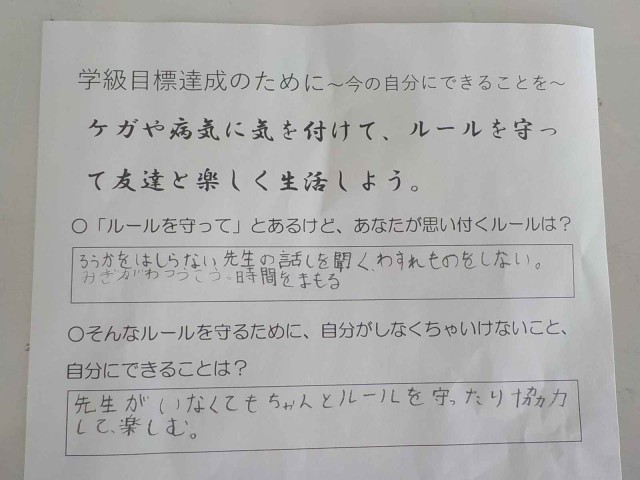 学級目標達成のために～今の自分にできることを～
ケガや病気に気を付けて、ルールを守っ
て友達と楽しく生活しよう。
○「ルールを守って」とあるけど、あなたが思い付くルールは？
ろうかをはしらない先生の話しを聞く、わすれものをしない。
みぎがわつうこう、時間をまもる
○そんなルールを守るために、自分がしなくちゃいけないこと、
自分にできることは？
先生がいなくてもちゃんとルールを守ったり協力
して、楽しむ。